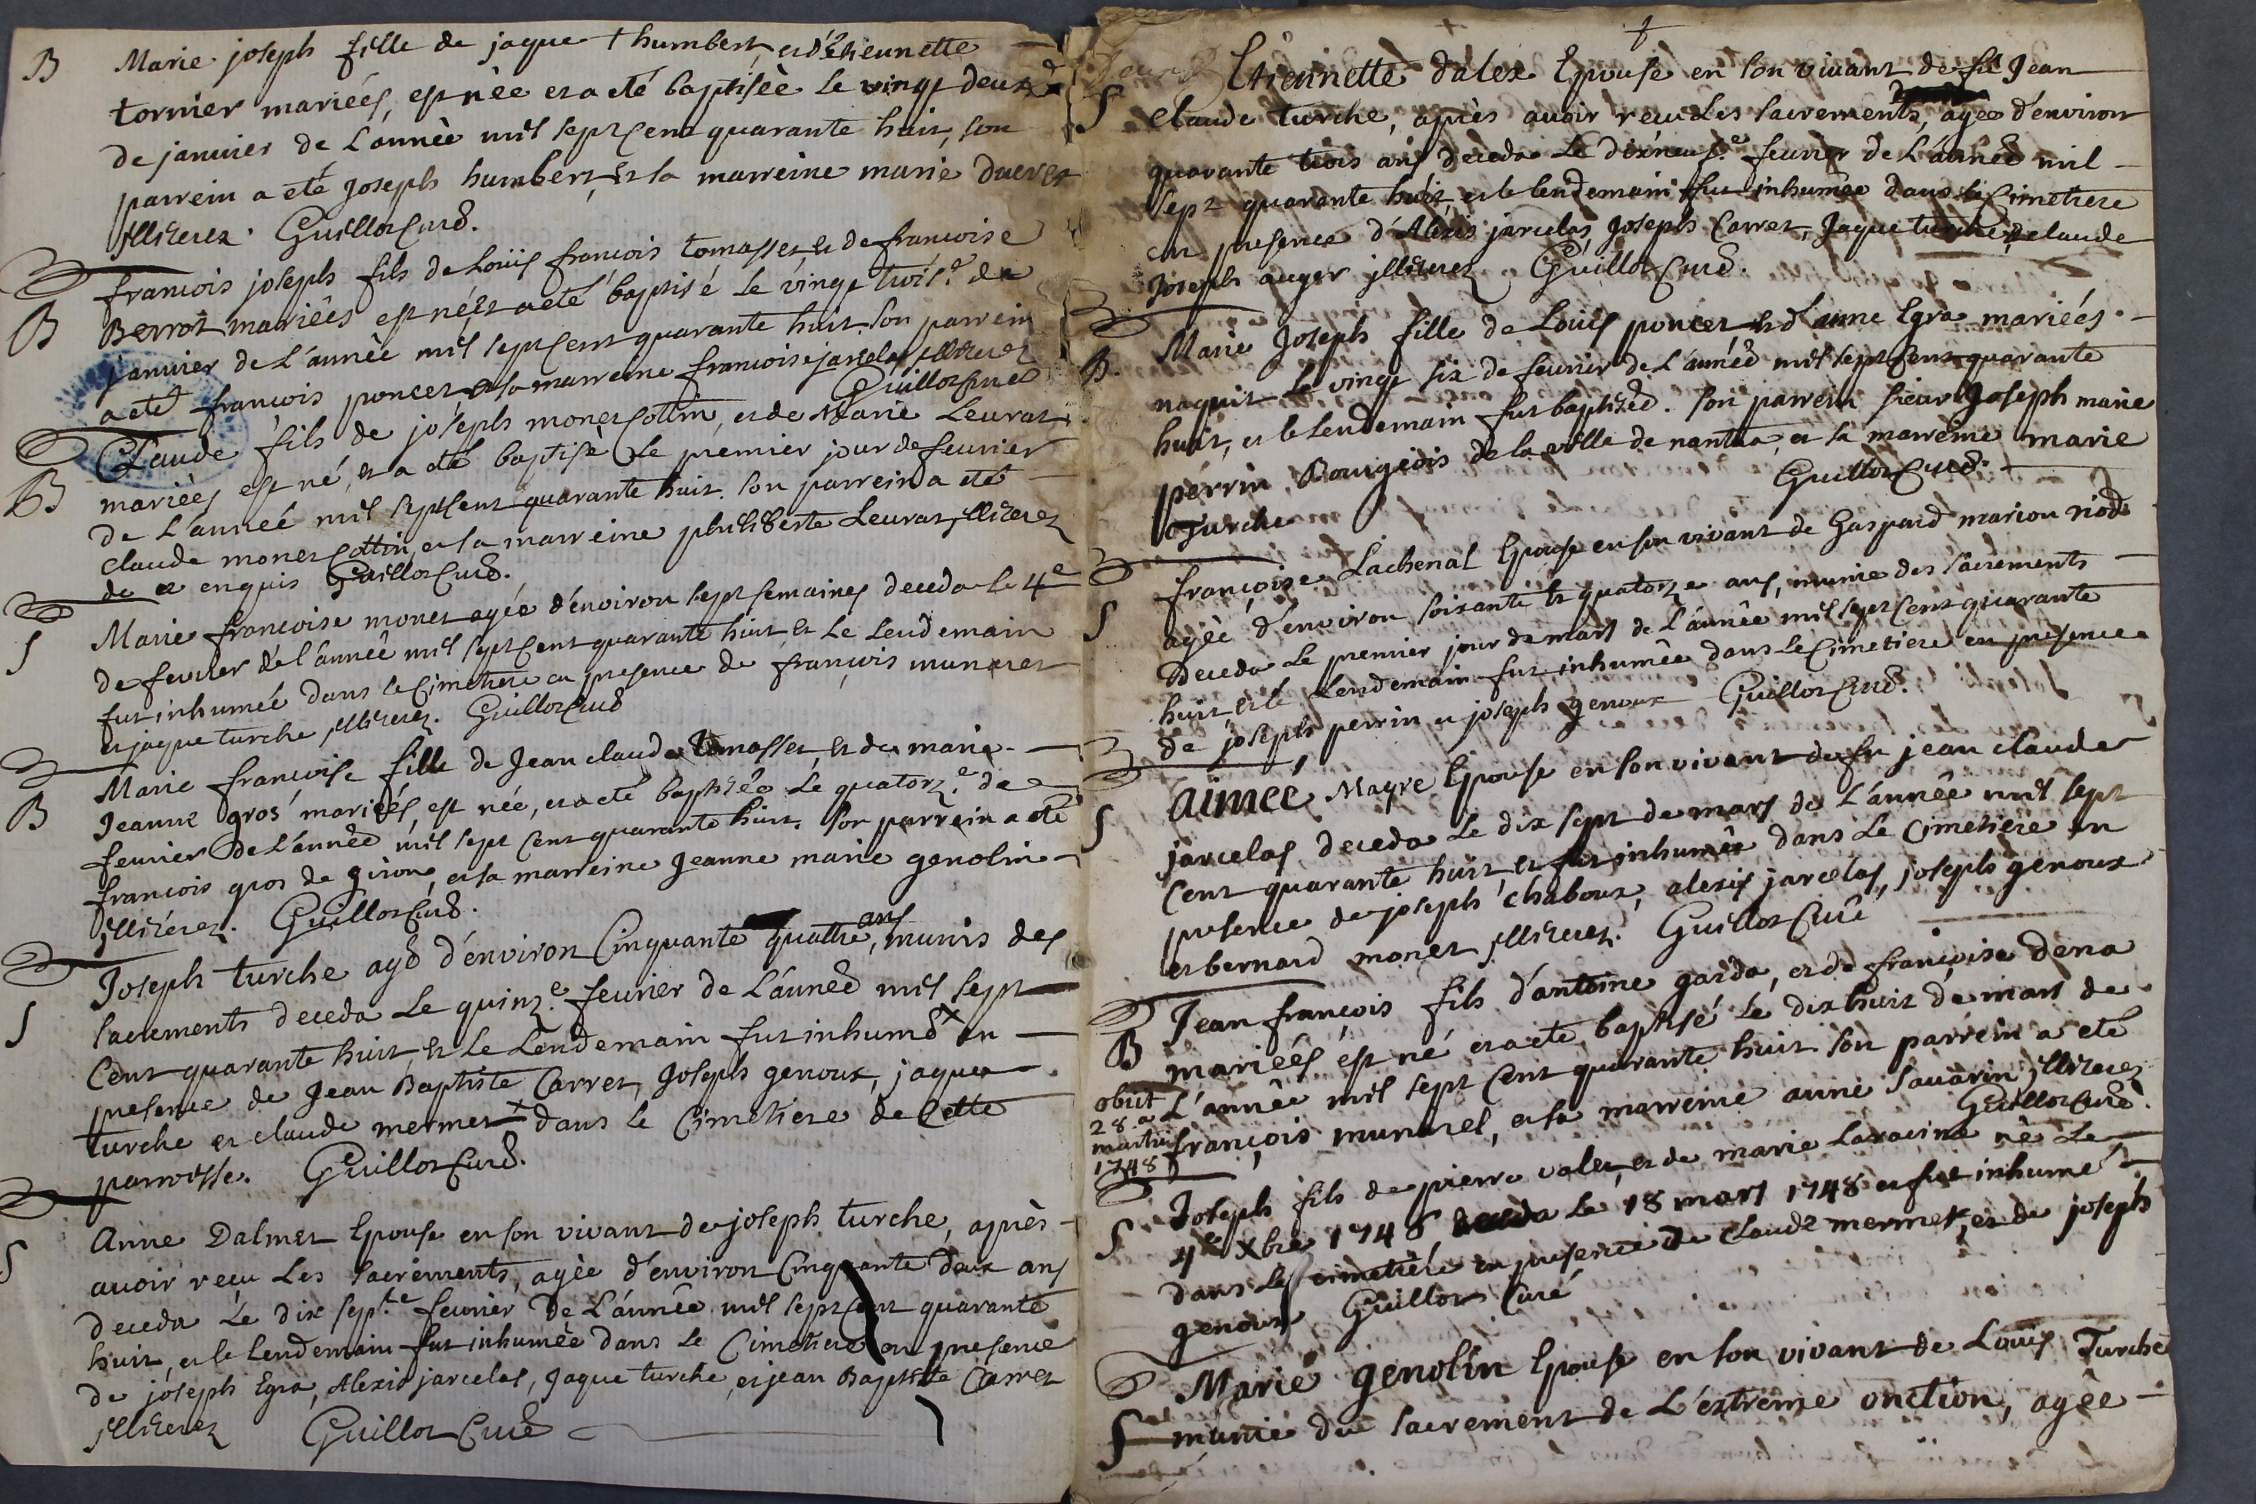 B Marie joseph fille de jaque humbert, et d'étiennette
tornier mariées, est née et a eté baptisèe le vingt deux.e
de janvier de L'annèe mil sept Cent quarante huit, son
parrein a eté Joseph humbert, et la marreine marie
jllitérez. Guillot Curé.
B francois joseph fils de Loüis francois tomasset, et de francoise
Berrot mariées est né, et a eté baptisé le vingt trois.e de
janvier de L'annèe mil sept Cent quarante huit. Son parrein
a eté francois poncet et la marreine francoise jarcelas jllitérez
Guillot Curé
B Claude fils de joseph monet Cottin, et de Marie Leurat
mariées est né, et a eté baptisè Le premier jour de feurier
de L'anneé mil sept Cent quarante huit. Son parrein a eté
Claude monet Cottin, et la marreine philiberte Leurat, jllitérez
de ce enquis Guillot Curé.
S Marie francoise monet agée d'environ sept semaines deceda le 4e
de feurier de L'année mil sept Cent quarante huit et Le Lendemain
fut inhumée dans le Cimetiere en presence de françois munaret
et jaque turche jllitérez. Guillot Curé
B Marie françoise fille de Jean claude tomasset, et de marie
Jeanne gros mariées, est née, et a eté baptisée Le quatorz.e de
feurier de L'année mil sept Cent quarante huit. Son parrein a eté
francois gros de giron, et la marreine Jeanne marie genolin
jllitérez. Guillot Curé.
S Joseph turche agé d'environ Cinquante quattre ans, munis des
sacrements deceda Le quinz.e feurier de L'année mil sept
Cent quarante huit, et Le Lendemain fut inhumé x en
presence de Jean Baptiste Carret, Joseph genoux, jaque
turche et claude mermet x dans le Cimetiere de Cette
parroisse. Guillot Curé.
S Anne Dalmet Epouse en son vivant de joseph turche, après
avoir reçu Les sacrements, agèe d'environ Cinquante deux ans
deceda Le dix sept.e feurier de L'année mil sept Cent quarante
huit, et le lendemain fut inhumèe dans le Cimetiere en presence
de joseph Egra, Alexis jarcelas, Jaque turche, et jean Baptiste Carret
jllitérez Guillot Curé
Etiennette dalex Epouse en son vivant de fû Jean
S claude turche, après avoir recu Les sacrements, agée d'environ
quarante trois ans deceda Le dixneuf.e feurier de L'année mil
sept quarante huit, et le lendemain fut inhumée dans le Cimetiere
en presence d'Alexis jarcelas, Joseph Carret, Jaque turche, et claude
Joseph auger jllitérez Guillot Curé.
B. Marie Joseph fille de Loüis poncet, et d'anne Egra mariées
naquit Le vingt six de feurier de L'année mil sept Cent quarante
huit, et le lendemain fut baptizée. Son parrein sieur Joseph marie
perrin Bourgeois de la ville de nantua, et sa marreine marie
Turche Guillot Curé.
S françoise Lachenal Epouse en son vivant de Gaspard marion
agèe d'environ soixante et quatorze ans, munie des sacrements
deceda Le premier jour de mars de L'année mil sept Cent quarante
huit, et le Lendemain fut inhumée dans Le Cimetiere en presence
de joseph perrin et joseph genoux Guillot Curé.
S aimeé Mayre Epouse en son vivant de fu jean claude
jarcelas deceda Le dix sept de mars de L'année mil sept
Cent quarante huit, et fut inhumée dans Le Cimetiere en
presence de joseph chaboux, alexis jarcelas, joseph genoux
et bernard monet jllitérez. Guillot Curé
B Jean françois fils d'antoine garda, et de françoise dena
mariées est né et a eté baptisé le dix huit de mars de
L'année mil sept Cent quarante huit. Son parrein a eté
françois munarel, et la marreine anne Savarin jllitérez
Guillot Curé.
obiit
28 a
martii
1748
S Joseph fils de pierre valet, et de marie Laravine nè Le
4e Xbre 1748, deceda Le 18 mars 1748 et fut inhumé
dans Le cimetiére en presence de claude mermet, et de joseph
genoux Guillot Curé
S Marie genolin Epouse en son vivant de Louis Turche
munie du sacrement de L'extreme onction, agée